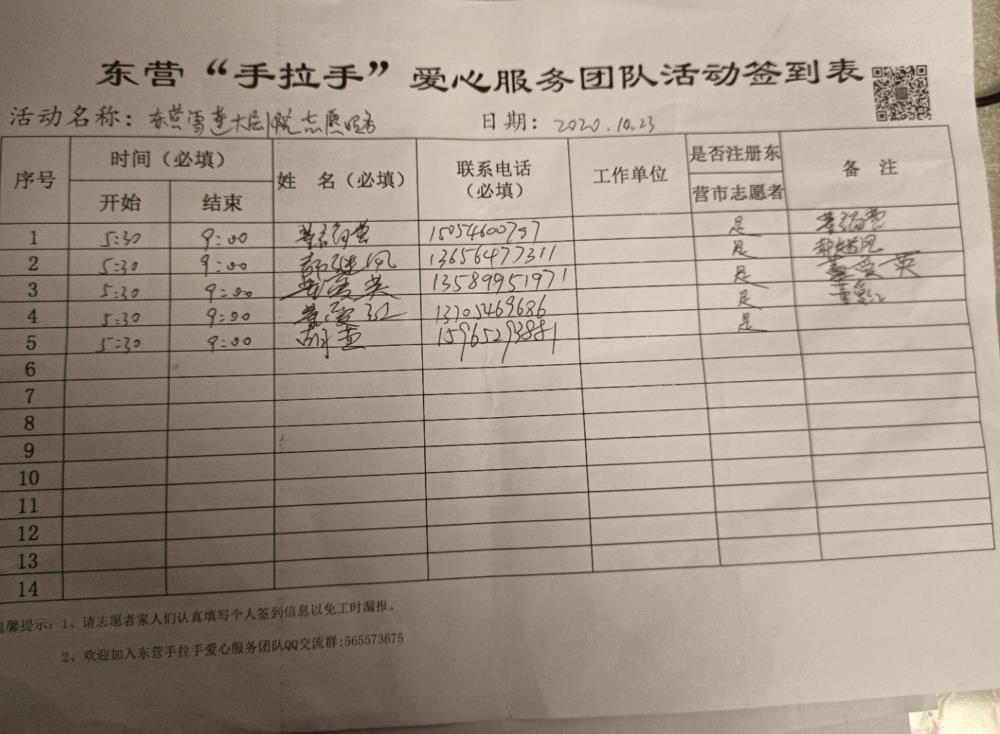 东营“手拉手”爱心服务团队活动签到表
活动名称：东营雪莲大剧院志愿服务 日期：2020.10.23
序号 时间（必填） 姓 名（必填） 联系电话（必填） 工作单位 是否注册东营市志愿者 备 注
开始 结束
1 5:30 9:00 15054600797 是
2 5:30 9:00 13656477311 是
3 5:30 9:00 董爱英 13589951971 是 董爱英
4 5:30 9:00 13705469686 是
5 5:30 9:00 15965293881 是
6
7
8
9
10
11
12
13
14
温馨提示：1、请志愿者家人们认真填写个人签到信息以免工时漏报。
2、欢迎加入东营手拉手爱心服务团队QQ交流群:565573675